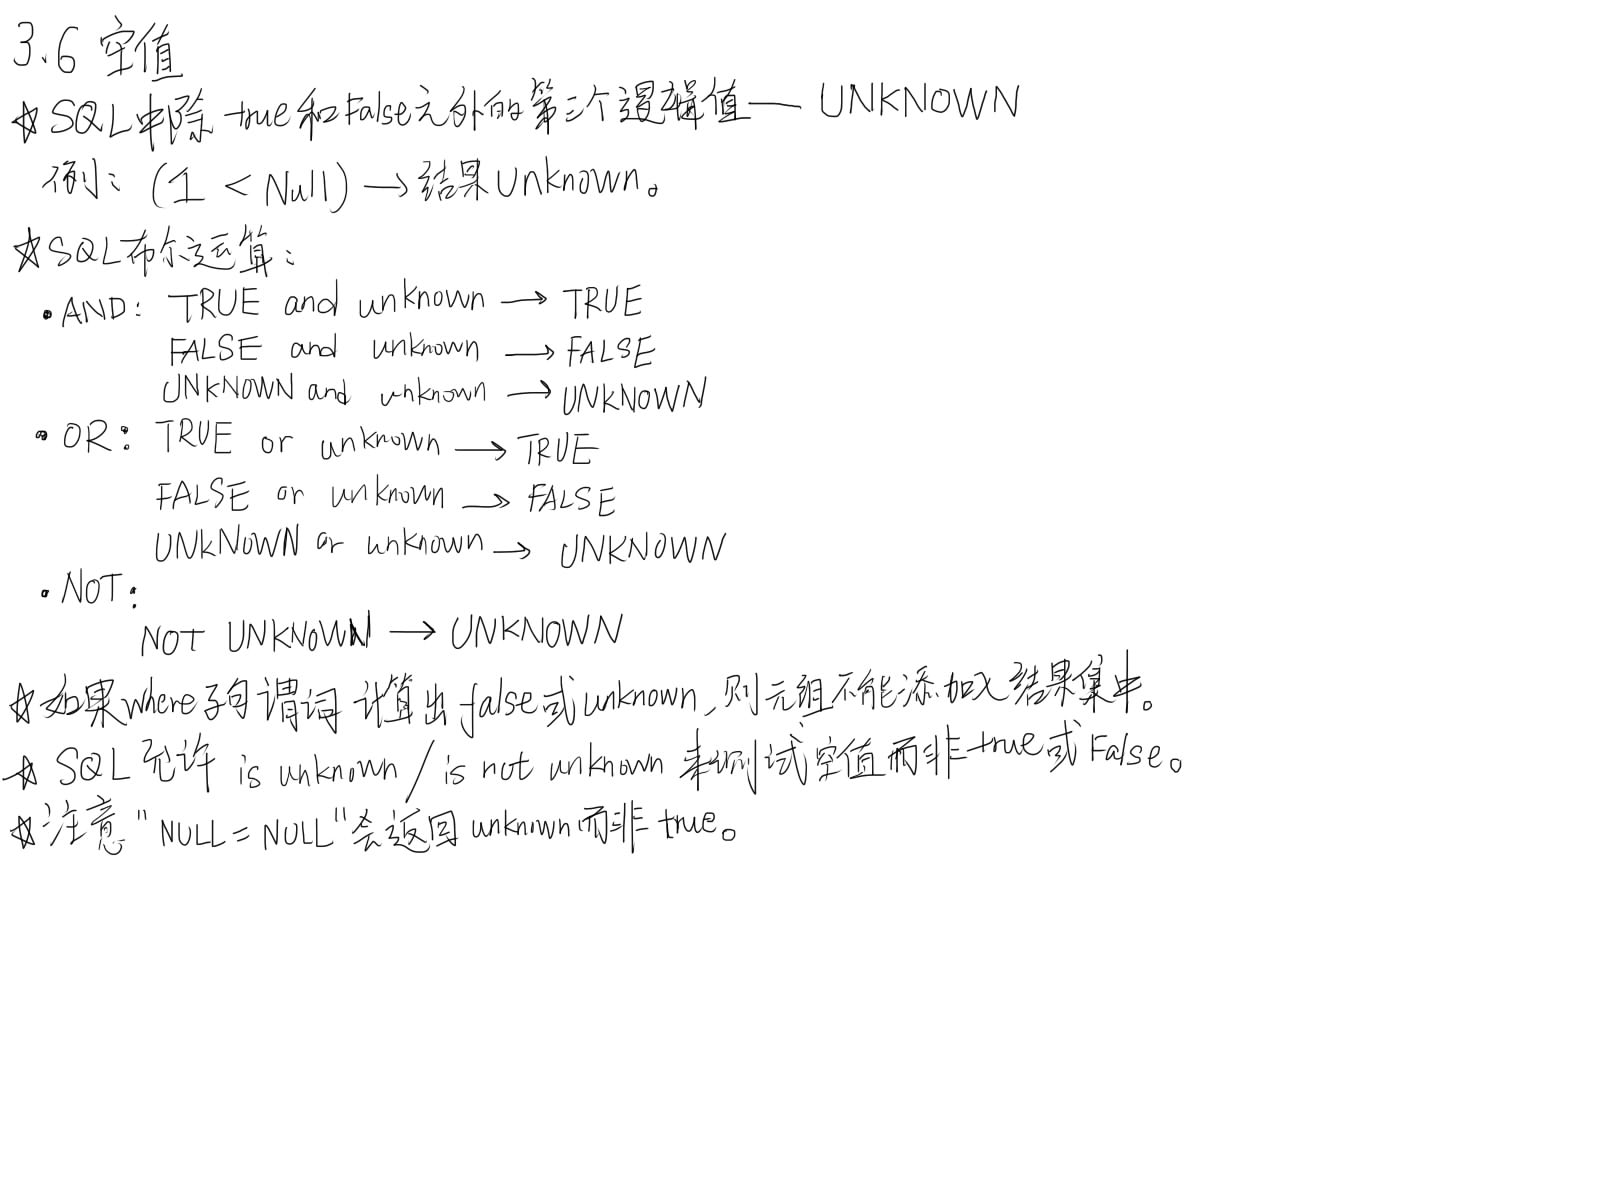 3.6 空值
☆SQL中除true和False之外的第三个逻辑值— UNKNOWN
例：(1 < Null) → 结果Unknown。
☆SQL布尔运算：
• AND： TRUE and unknown → TRUE
FALSE and unknown → FALSE
UNKNOWN and unknown → UNKNOWN
• OR： TRUE or unknown → TRUE
FALSE or unknown → FALSE
UNKNOWN or unknown → UNKNOWN
• NOT：
NOT UNKNOWN → UNKNOWN
☆如果where子句谓词计算出false或unknown,则元组不能添加入结果集中。
☆ SQL允许 is unknown / is not unknown 来测试空值而非true或False。
☆注意"NULL = NULL"会返回unknown而非true。